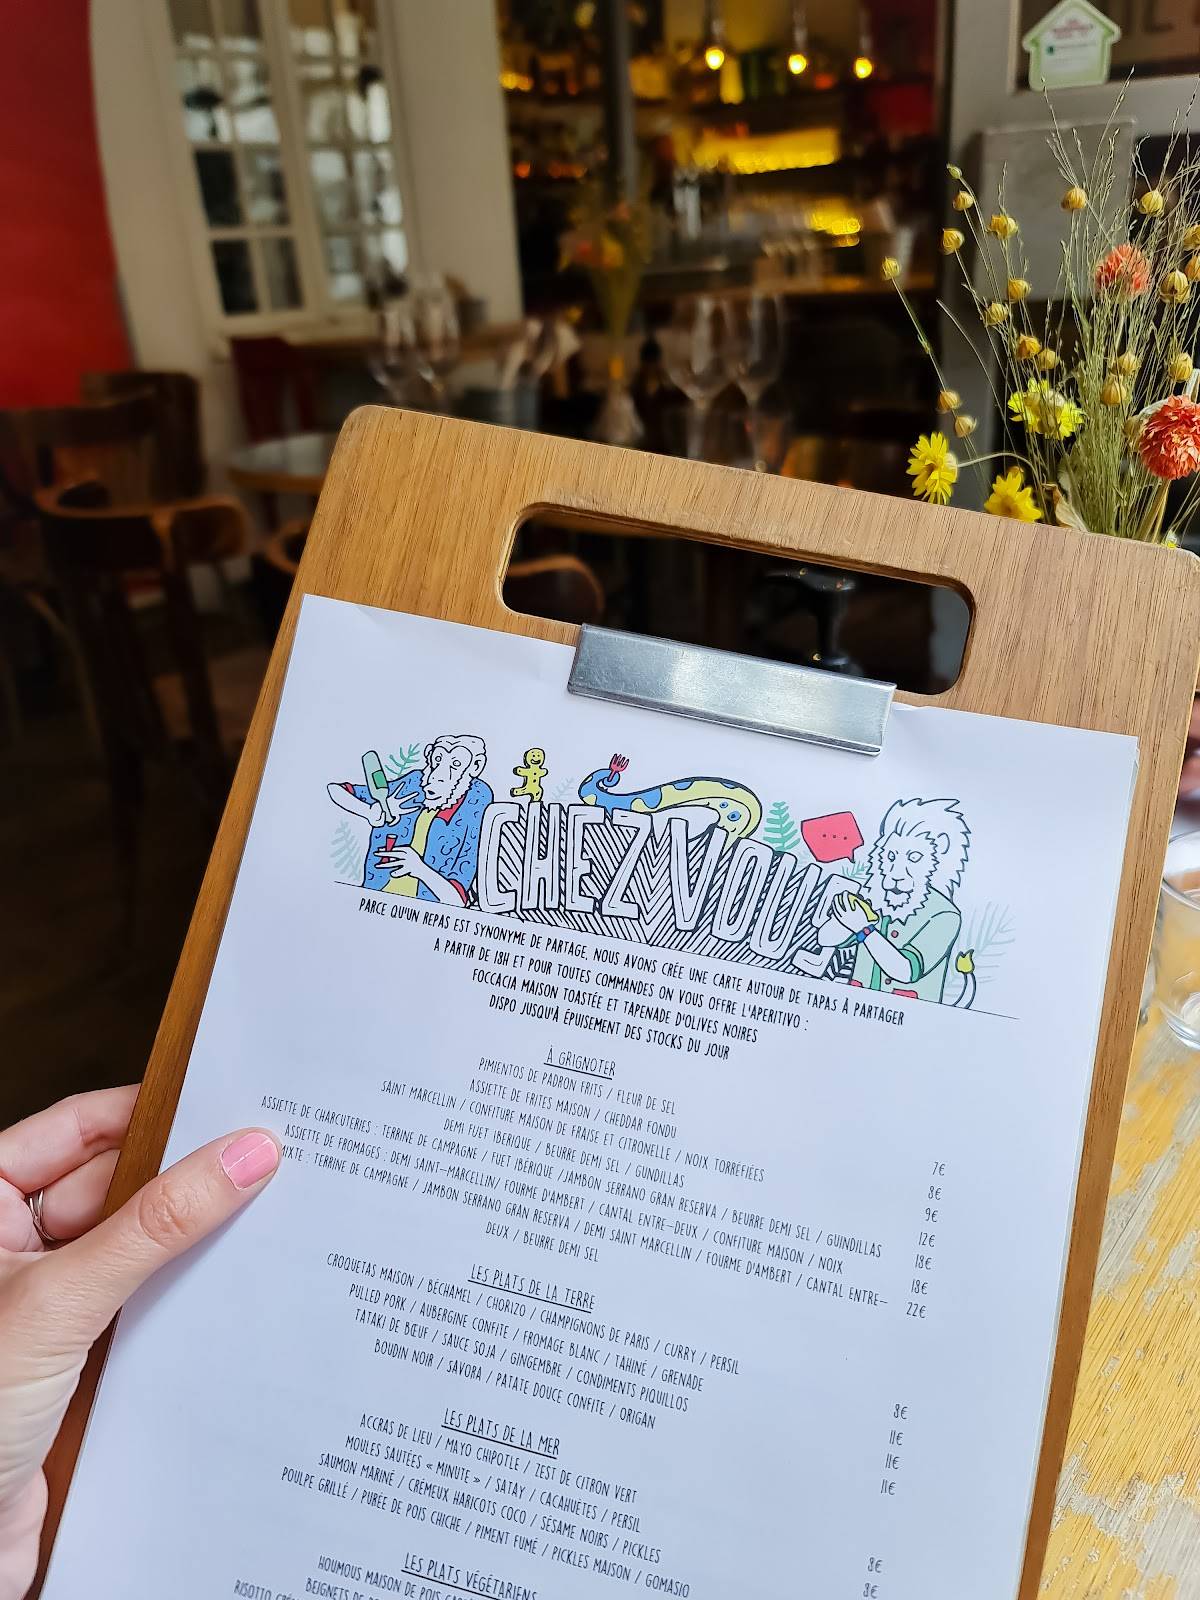 CHEZ VOUS
PARCE QU'UN REPAS EST SYNONYME DE PARTAGE, NOUS AVONS CRÉE UNE CARTE AUTOUR DE TAPAS À PARTAGER
A PARTIR DE 18H ET POUR TOUTES COMMANDES ON VOUS OFFRE L'APERITIVO :
FOCCACIA MAISON TOASTÉE ET TAPENADE D'OLIVES NOIRES
DISPO JUSQU'À ÉPUISEMENT DES STOCKS DU JOUR
À GRIGNOTER
PIMIENTOS DE PADRON FRITS / FLEUR DE SEL 7€
ASSIETTE DE FRITES MAISON / CHEDDAR FONDU 8€
SAINT MARCELLIN / CONFITURE MAISON DE FRAISE ET CITRONELLE / NOIX TORRÉFIÉES 9€
DEMI FUET IBERIQUE / BEURRE DEMI SEL / GUNDILLAS 12€
ASSIETTE DE CHARCUTERIES : TERRINE DE CAMPAGNE / FUET IBÉRIQUE /JAMBON SERRANO GRAN RESERVA / BEURRE DEMI SEL / GUINDILLAS 18€
ASSIETTE DE FROMAGES : DEMI SAINT-MARCELLIN/ FOURME D'AMBERT / CANTAL ENTRE-DEUX / CONFITURE MAISON / NOIX 18€
MIXTE : TERRINE DE CAMPAGNE / JAMBON SERRANO GRAN RESERVA / DEMI SAINT MARCELLIN / FOURME D'AMBERT / CANTAL ENTRE- 22€
DEUX / BEURRE DEMI SEL
LES PLATS DE LA TERRE
CROQUETAS MAISON / BÉCHAMEL / CHORIZO / CHAMPIGNONS DE PARIS / CURRY / PERSIL 8€
PULLED PORK / AUBERGINE CONFITE / FROMAGE BLANC / TAHINÉ / GRENADE 11€
TATAKI DE BŒUF / SAUCE SOJA / GINGEMBRE / CONDIMENTS PIQUILLOS 11€
BOUDIN NOIR / SAVORA / PATATE DOUCE CONFITE / ORIGAN 11€
LES PLATS DE LA MER
ACCRAS DE LIEU / MAYO CHIPOTLE / ZEST DE CITRON VERT 8€
MOULES SAUTÉES « MINUTE » / SATAY / CACAHUÈTES / PERSIL 8€
SAUMON MARINÉ / CRÉMEUX HARICOTS COCO / SÉSAME NOIRS / PICKLES
POULPE GRILLÉ / PURÉE DE POIS CHICHE / PIMENT FUMÉ / PICKLES MAISON / GOMASIO
LES PLATS VÉGÉTARIENS
HOUMOUS MAISON DE POIS
BEIGNETS DE
RISOTTO